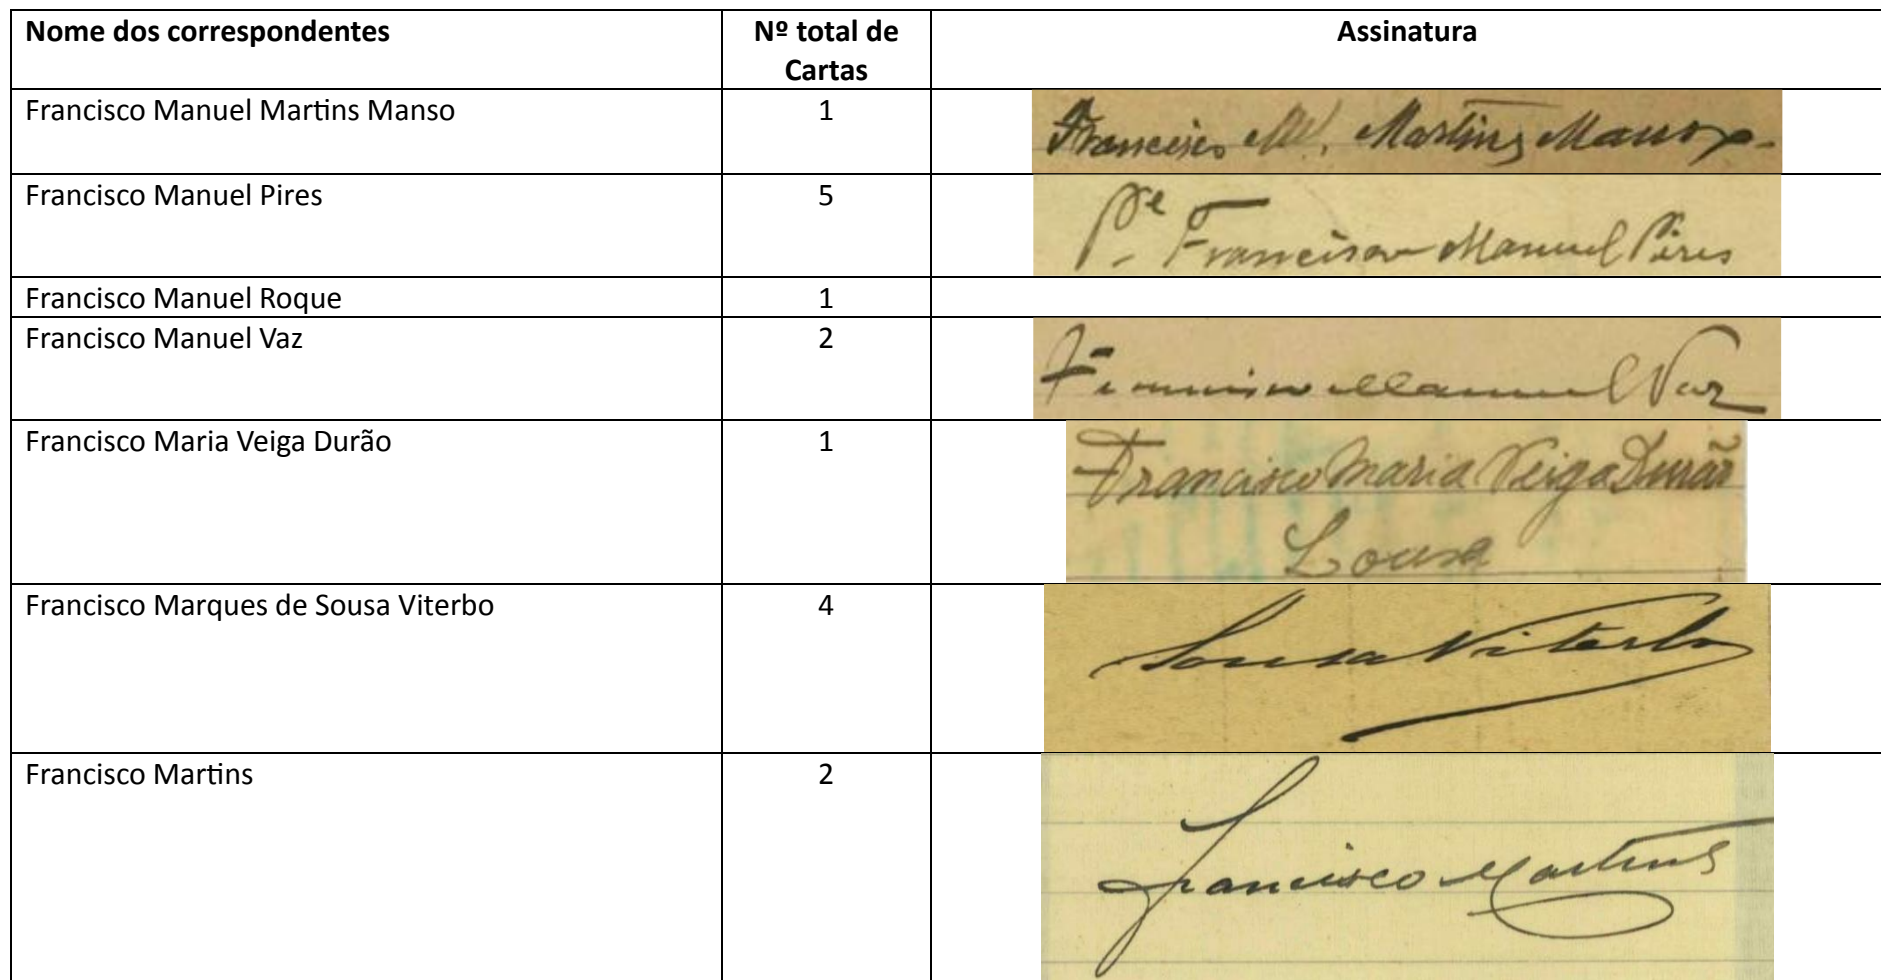 Nome dos correspondentes
Nº total de
Cartas
Assinatura
Francisco Manuel Martins Manso
1
Francisco Ml. Martins Manso
Francisco Manuel Pires
5
Pe Francisco Manuel Pires
Francisco Manuel Roque
1
Francisco Manuel Vaz
2
Francisco Manuel Vaz
Francisco Maria Veiga Durão
1
Francisco Maria Veiga Durão
Lousa
Francisco Marques de Sousa Viterbo
4
Sousa Viterbo
Francisco Martins
2
Francisco Martins